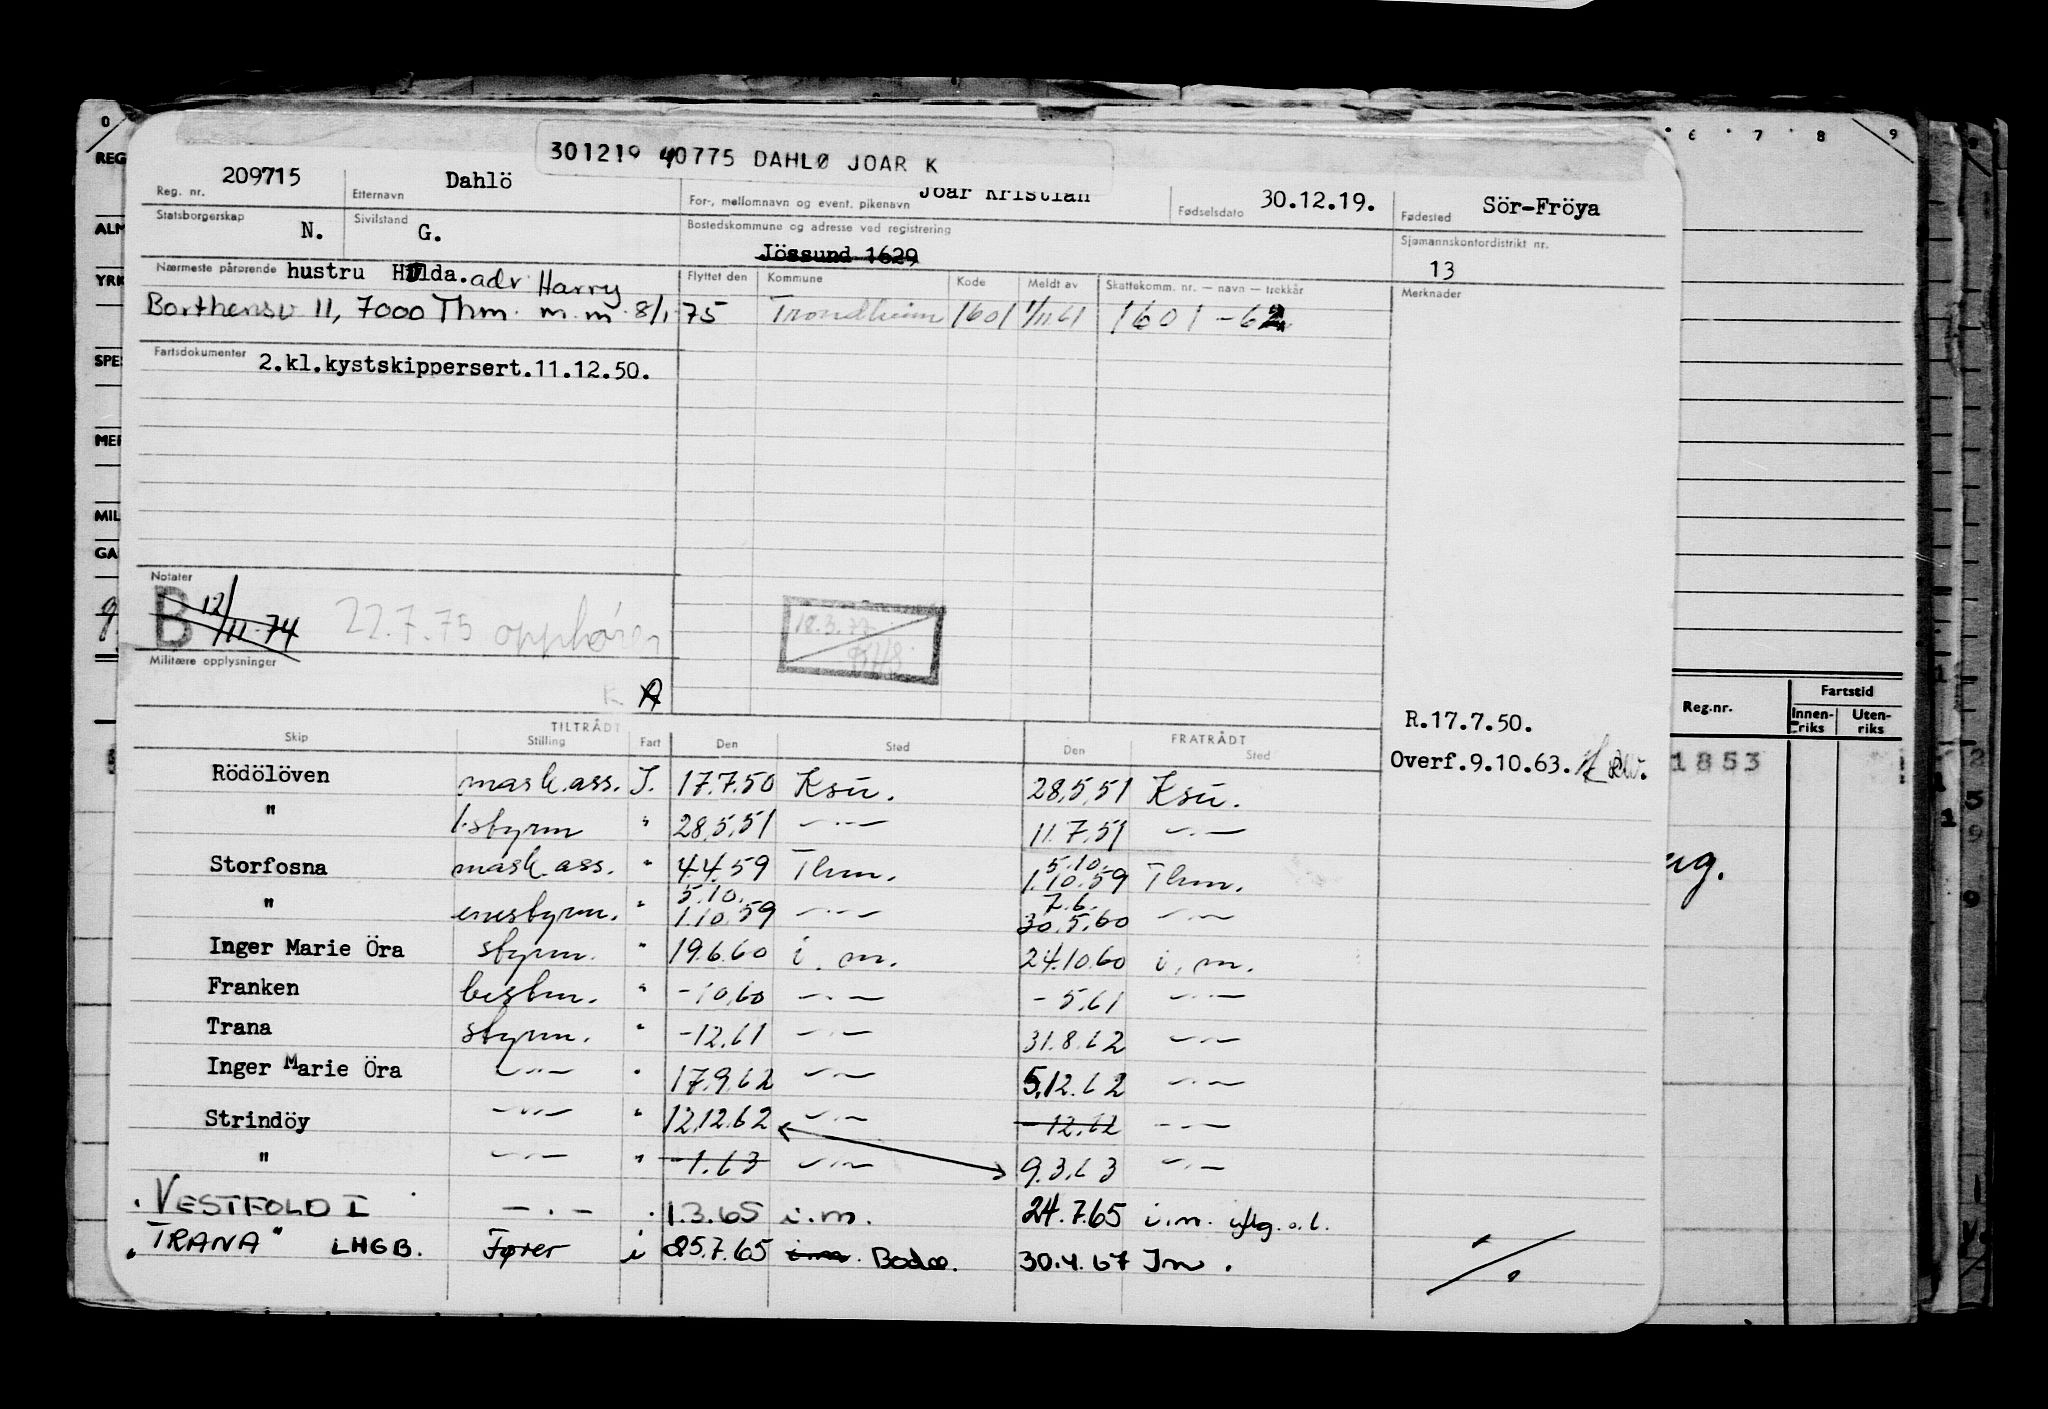 301219 40775 DAHLØ JOAR K
Reg. nr. 209715 Etternavn Dahlö For-, mellomnavn og event. pikenavn Joar Kristian Fødselsdato 30.12.19. Fødested Sör-Fröya
Statsborgerskap N. Sivilstand G. Bostedskommune og adresse ved registrering Jössund 1629 Sjømannskontordistrikt nr. 13
Nærmeste pårørende hustru Hilda. adr Harry
Borthensv 11, 7000 Thm. m.m. 8/1-75
Flyttet den Kommune Kode Meldt av Skattekomm. nr. — navn — trekkår Merknader
Trondheim 1601 1/11 61 1601-62
Fartsdokumenter 2.kl.kystskippersert.11.12.50.
Notater
B 12/11-74 22.7.75 opphører
Militære opplysninger
K A
R.17.7.50.
Overf.9.10.63.
TILTRÅDT FRATRÅDT
Skip Stilling Fart Den Sted Den Sted
Rödölöven mask.ass. I. 17.7.50 Ksu. 28.5.51 Ksu.
" 1.styrm " 28.5.51 —"— 11.7.51 —"—
Storfosna mask.ass. " 4.4.59 Thm. 5.10. 1.10.59 Thm.
" enestyrm. " 5.10. 1.10.59 —"— 7.6. 30.5.60 —"—
Inger Marie Öra styrm. " 19.6.60 i.m. 24.10.60 i.m.
Franken bestm. " -10.60 —"— -5.61 —"—
Trana styrm. " -12.61 —"— 31.8.62 —"—
Inger Marie Öra —"— " 17.9.62 —"— 5.12.62 —"—
Strindöy —"— " 12.12.62 —"— -12.62 —"—
" —"— " -1.63 —"— 9.3.63 —"—
"VESTFOLD I —"— " 1.3.65 i.m. 24.7.65 i.m. iflg. o.l.
"TRANA" LHGB. Fører i 25.7.65 i.m. Bodø. 30.4.67 Im.
0 6 7 8 9
REG
ALM
YRK
SPE
MER
MIL
GA
Reg.nr. Fartstid
Innenriks Utenriks
1853